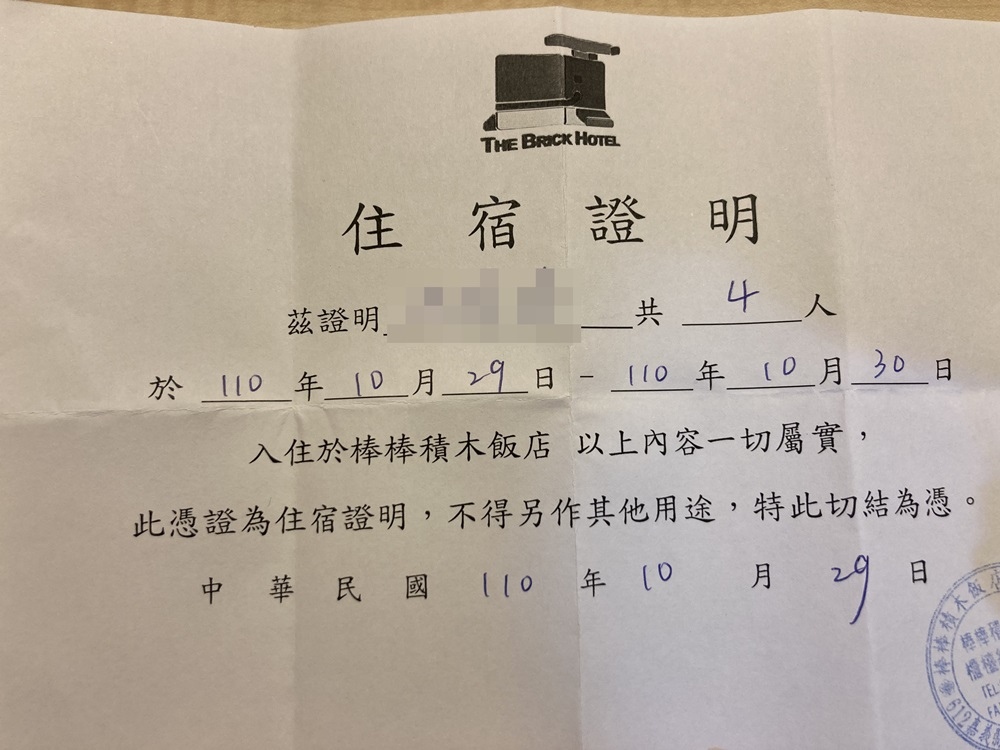 THE BRICK HOTEL
住宿證明
茲證明 共 4 人
於 110 年 10 月 29 日 - 110 年 10 月 30 日
入住於棒棒積木飯店 以上內容一切屬實，
此憑證為住宿證明，不得另作其他用途，特此切結為憑。
中華民國 110 年 10 月 29 日
棒棒積木飯
棒棒積
櫃檯
TEL
FA
612嘉義